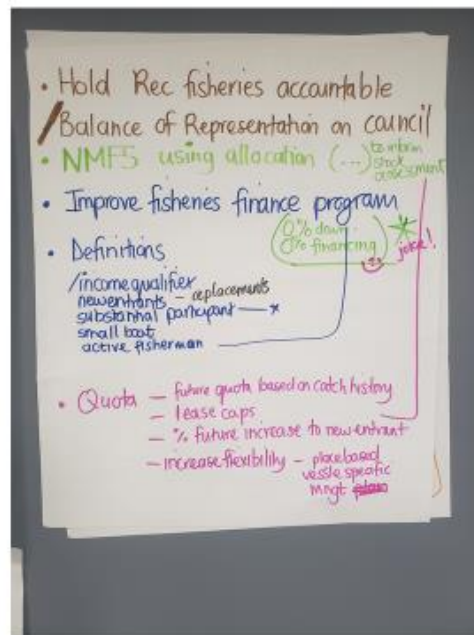 • Hold Rec fisheries accountable
/Balance of Representation on council
• NMFS using allocation (...) to inform
stock
assessment
• Improve fisheries finance program
(0% down
0% financing)
joke!
• Definitions
/income qualifier
new entrants – replacements
substantial participant — *
small boat
active fisherman
• Quota – future quota based on catch history
– lease caps
– % future increase to new entrant
– increase flexibility – place based
vessle specific
mngt plan